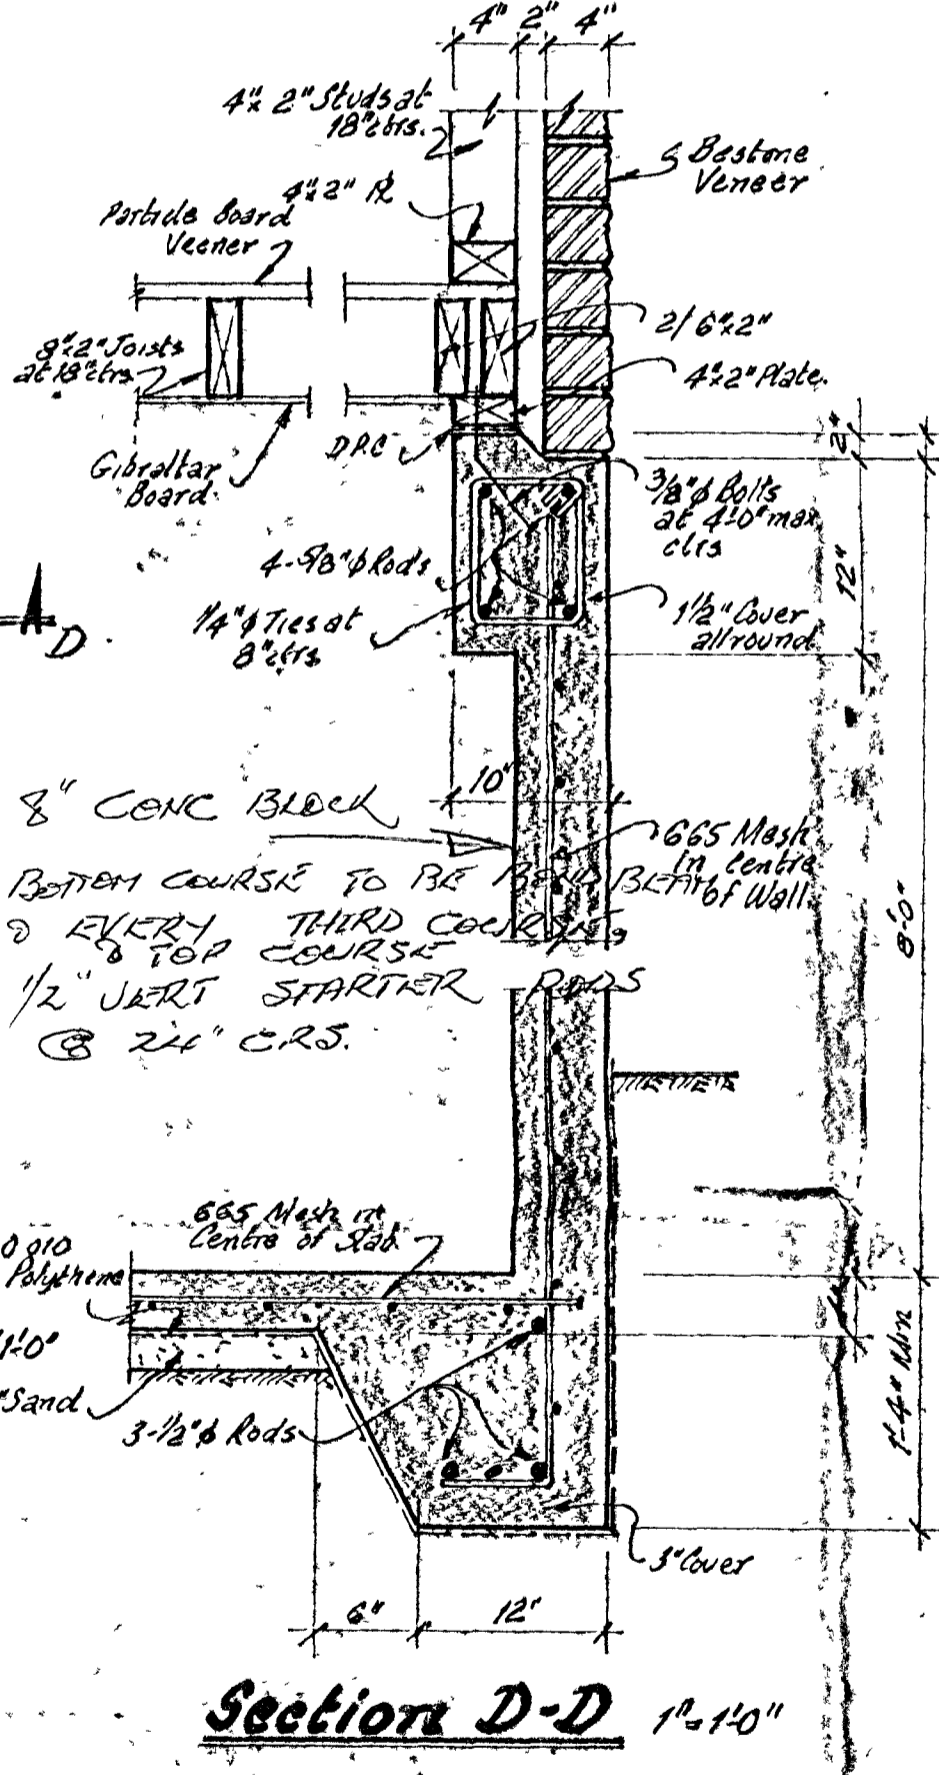 4" 2" 4"
4"x 2" Studs at
18" ctrs.
Bestone
Veneer
4"x2" Pl
Particle Board
Veener
2/6"x2"
8"x2" Joists
at 18" ctrs
4"x2" Plate.
2"
D.P.C
Gibraltar
Board.
3/8"φ Bolts
at 4'-0" max
ctrs
4-5/8"φ Rods
12"
1/4"φ Ties at
8" ctrs
1 1/2" Cover
allround.
D
10"
8" CONC BLOCK
665 Mesh
in centre
of Wall.
BOTTOM COURSE TO BE BOND BEAM
EVERY THIRD COURSE
& TOP COURSE
1/2" VERT STARTER RODS
@ 24" CRS.
8'-0"
665 Mesh in
Centre of Slab
Polythene
1'-0"
Sand
3-1/2"φ Rods
1'-4" Min
3" Cover
6" 12"
Section D-D 1"=1'-0"